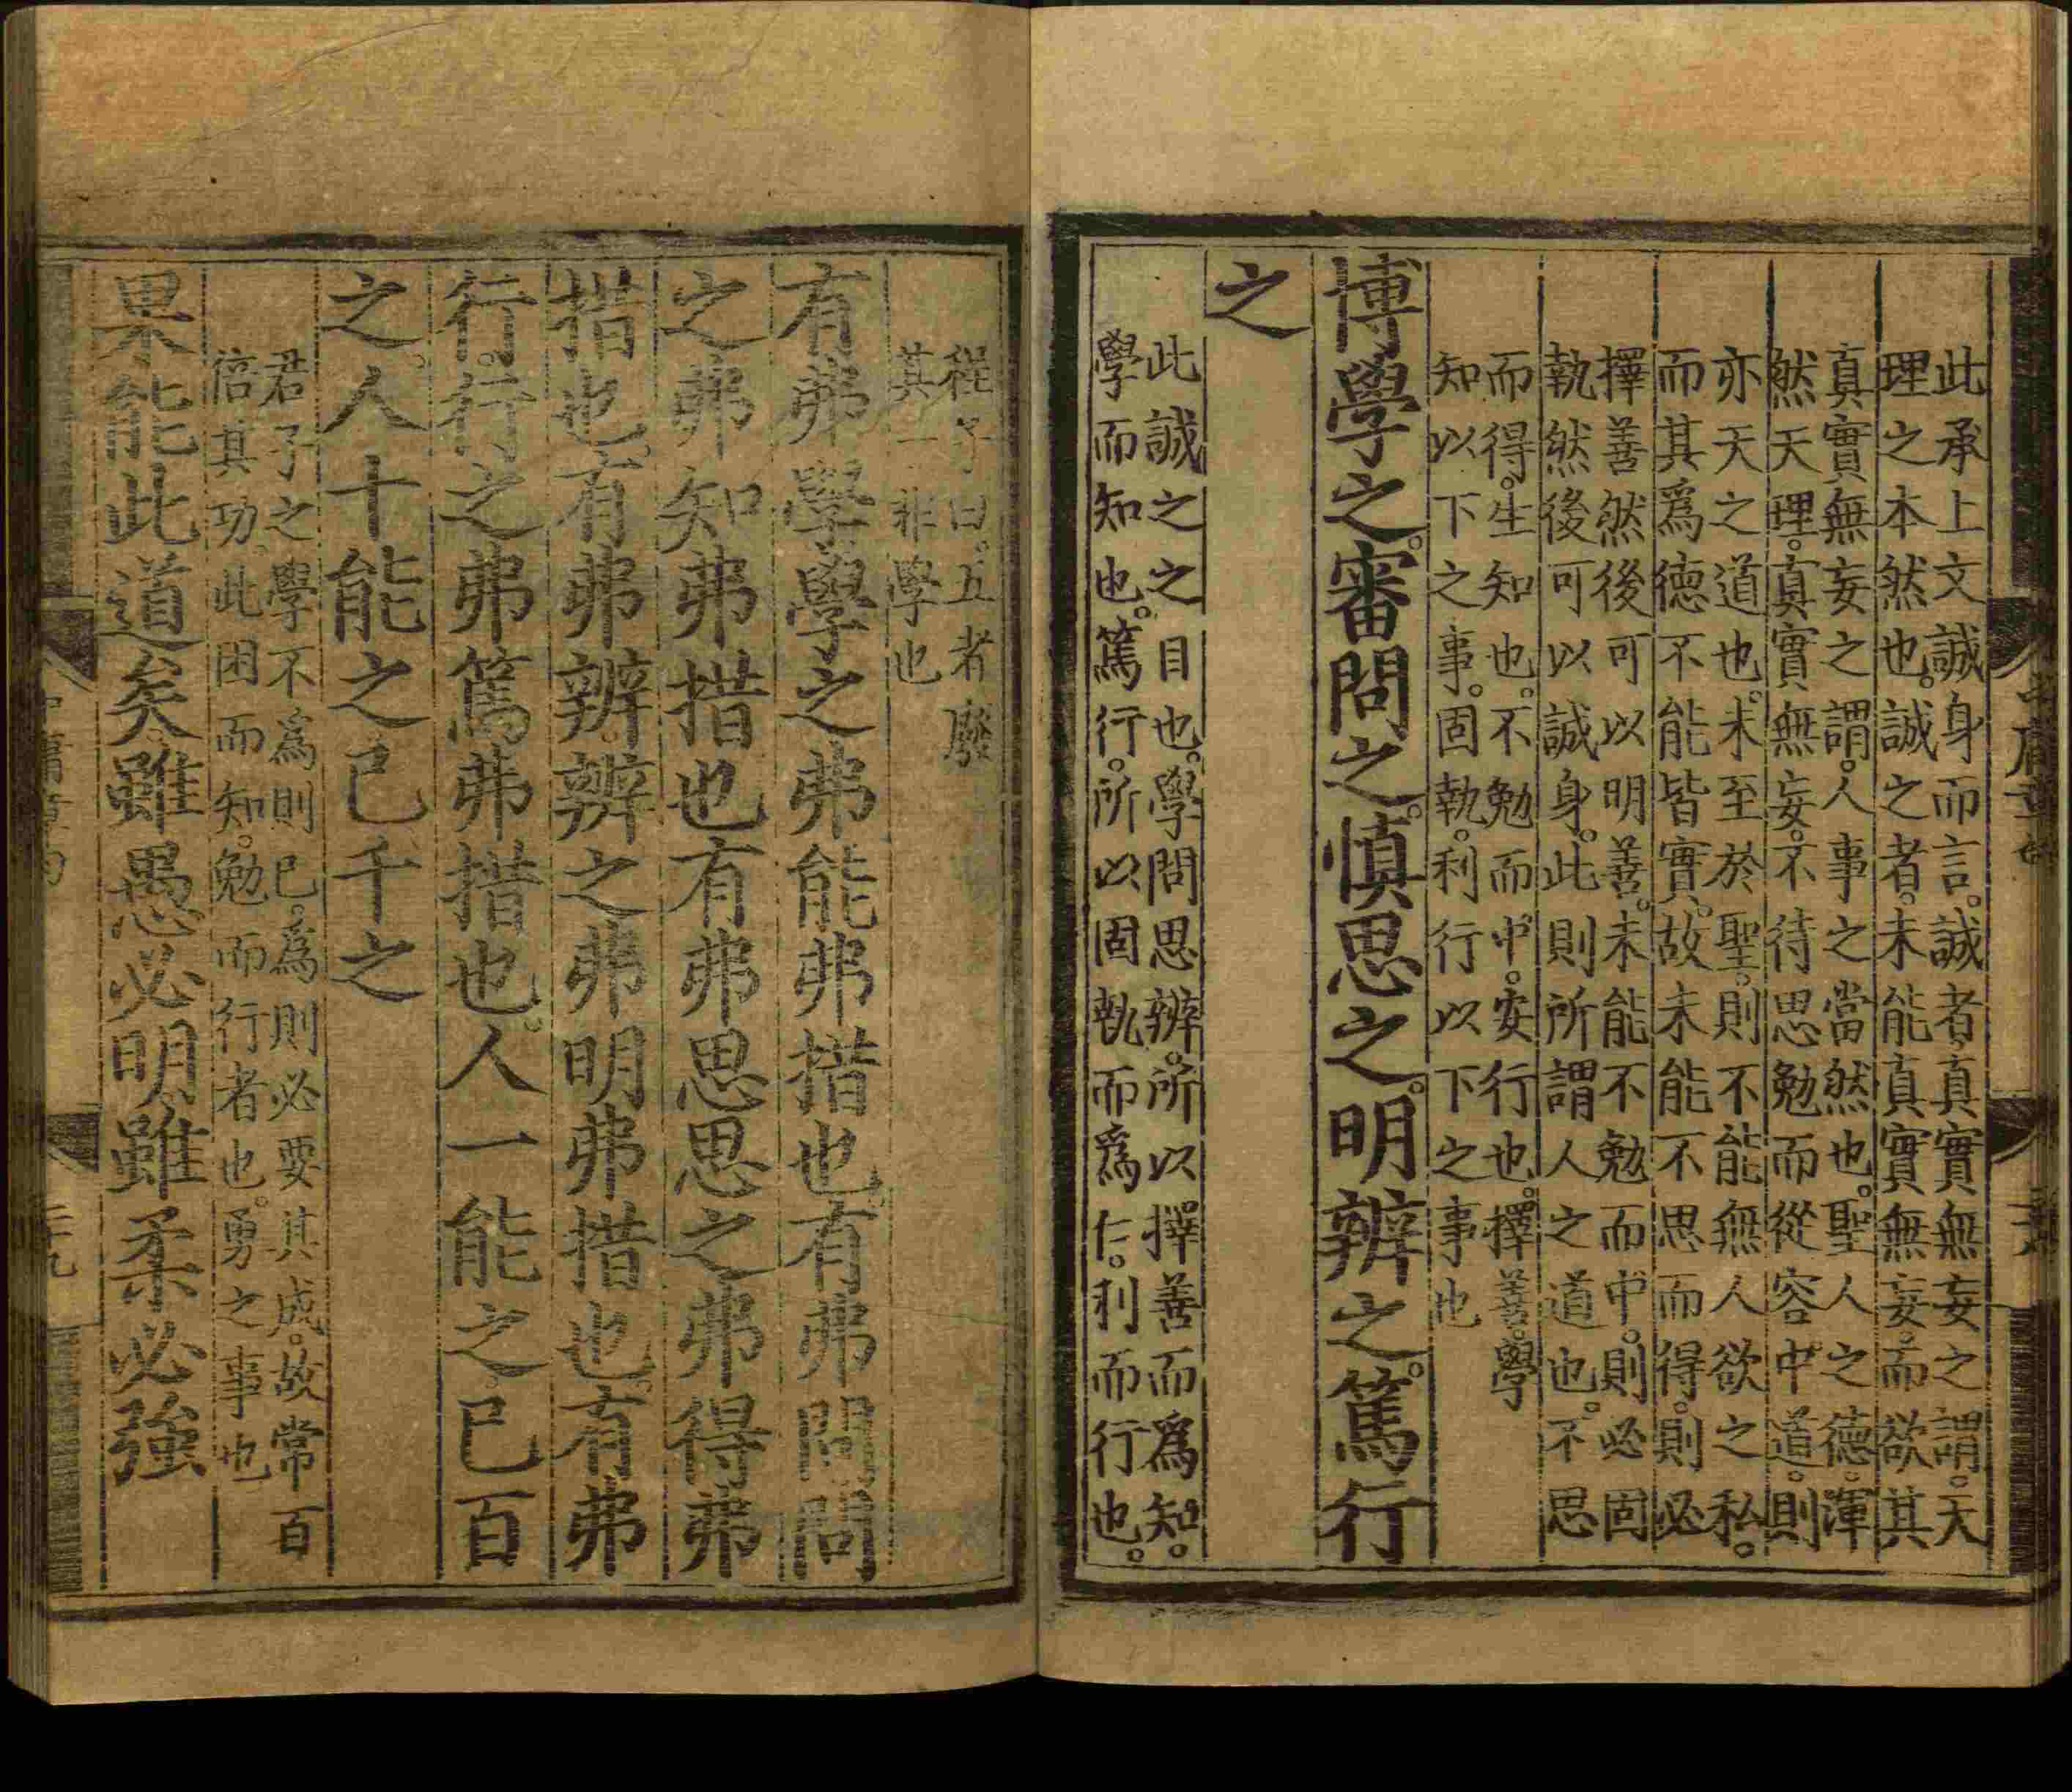 此承上文誠身而言。誠者真實無妄之謂。天
理之本然也。誠之者。未能真實無妄。而欲其
真實無妄之謂。人事之當然也。聖人之德。渾
然天理。真實無妄。不待思勉而從容中道。則
亦天之道也。未至於聖。則不能無人欲之私。
而其爲德不能皆實。故未能不思而得。則必
擇善然後可以明善。未能不勉而中。則必固
執然後可以誠身。此則所謂人之道也。不思
而得。生知也。不勉而中。安行也。擇善。學
知以下之事。固執。利行以下之事也
博學之。審問之。慎思之。明辨之。篤行
之
此誠之之目也。學問思辨。所以擇善而爲知。
學而知也。篤行。所以固執而爲仁。利而行也。
程子曰。五者廢
其一非學也
有弗學學之弗能弗措也有弗問問
之弗知弗措也有弗思思之弗得弗
措也。有弗辨。辨之弗明弗措也。有弗
行。行之弗篤弗措也。人一能之己百
之。人十能之己千之
君子之學不爲則已。爲則必要其成。故常百
倍其功。此困而知。勉而行者也。勇之事也
果能此道矣。雖愚必明。雖柔必強